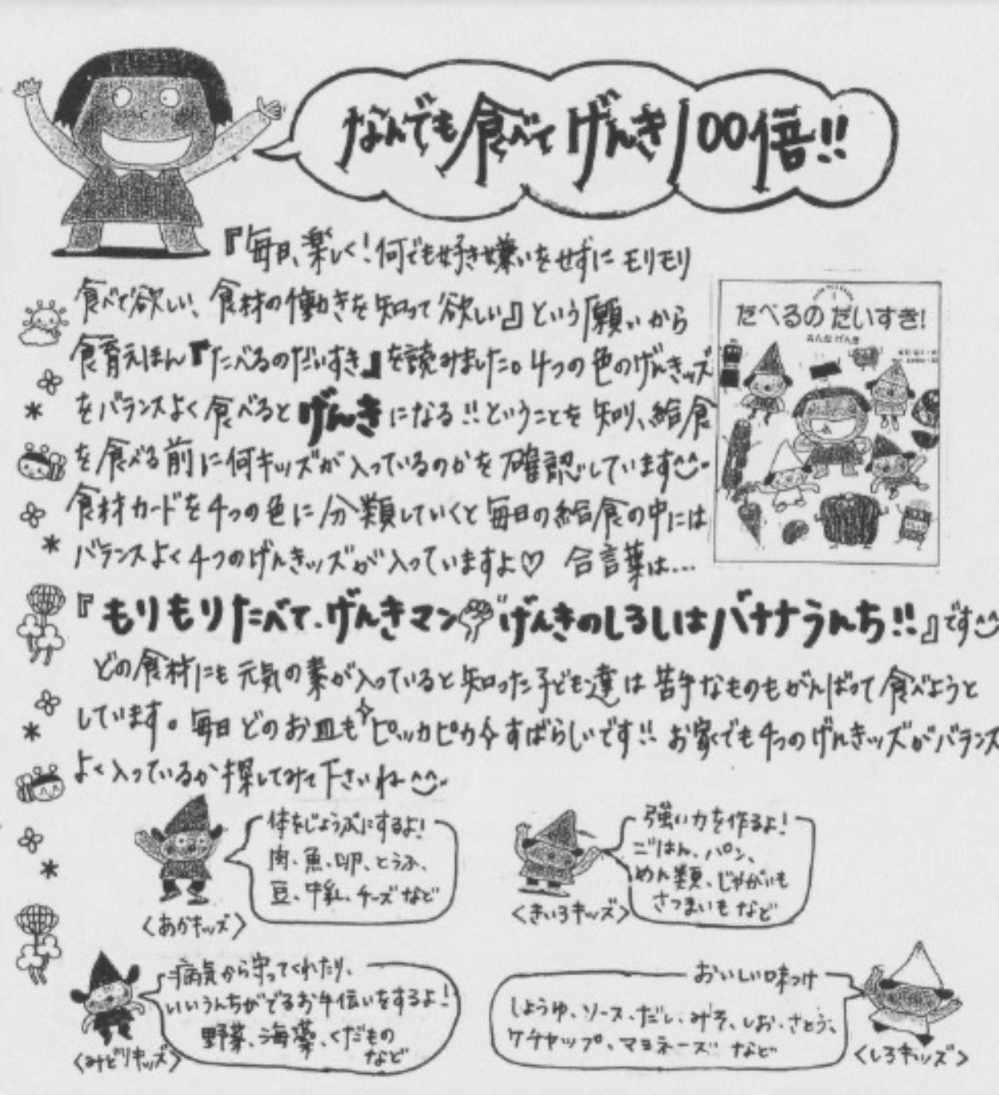 なんでも食べて げんき100倍!!
『毎日、楽しく!何でも好き嫌いをせずに モリモリ
食べて欲しい、食材の働きを知って欲しい』という願いから
食育えほん『たべるのだいすき』を読みました。4つの色のげんきッズ
をバランスよく食べると げんき になる!!ということを知り、給食
を食べる前に何キッズが入っているのかを確認しています^^
食材カードを4つの色に分類していくと毎日の給食の中には
バランスよく4つのげんきッズが入っていますよ♡ 合言葉は…
『もりもりたべて、げんきマン✊げんきのしるしはバナナうんち!!』です^^
どの食材にも元気の素が入っていると知った子ども達は苦手なものもがんばって食べようと
しています。毎日どのお皿もピッカピカ✧すばらしいです!! お家でも4つのげんきッズがバランス
よく入っているか探してみて下さいね^^
たべるの だいすき!
みんな げんき
体をじょうぶにするよ!
肉、魚、卵、とうふ、
豆、牛乳、チーズ など
〈あかキッズ〉
強い力を作るよ!
ごはん、パン、
めん類、じゃがいも
さつまいも など
〈きいろキッズ〉
病気から守ってくれたり、
いいうんちがでるお手伝いをするよ!
野菜、海藻、くだもの
など
〈みどりキッズ〉
おいしい味つけ
しょうゆ、ソース、だし、みそ、しお、さとう、
ケチャップ、マヨネーズ など
〈しろキッズ〉